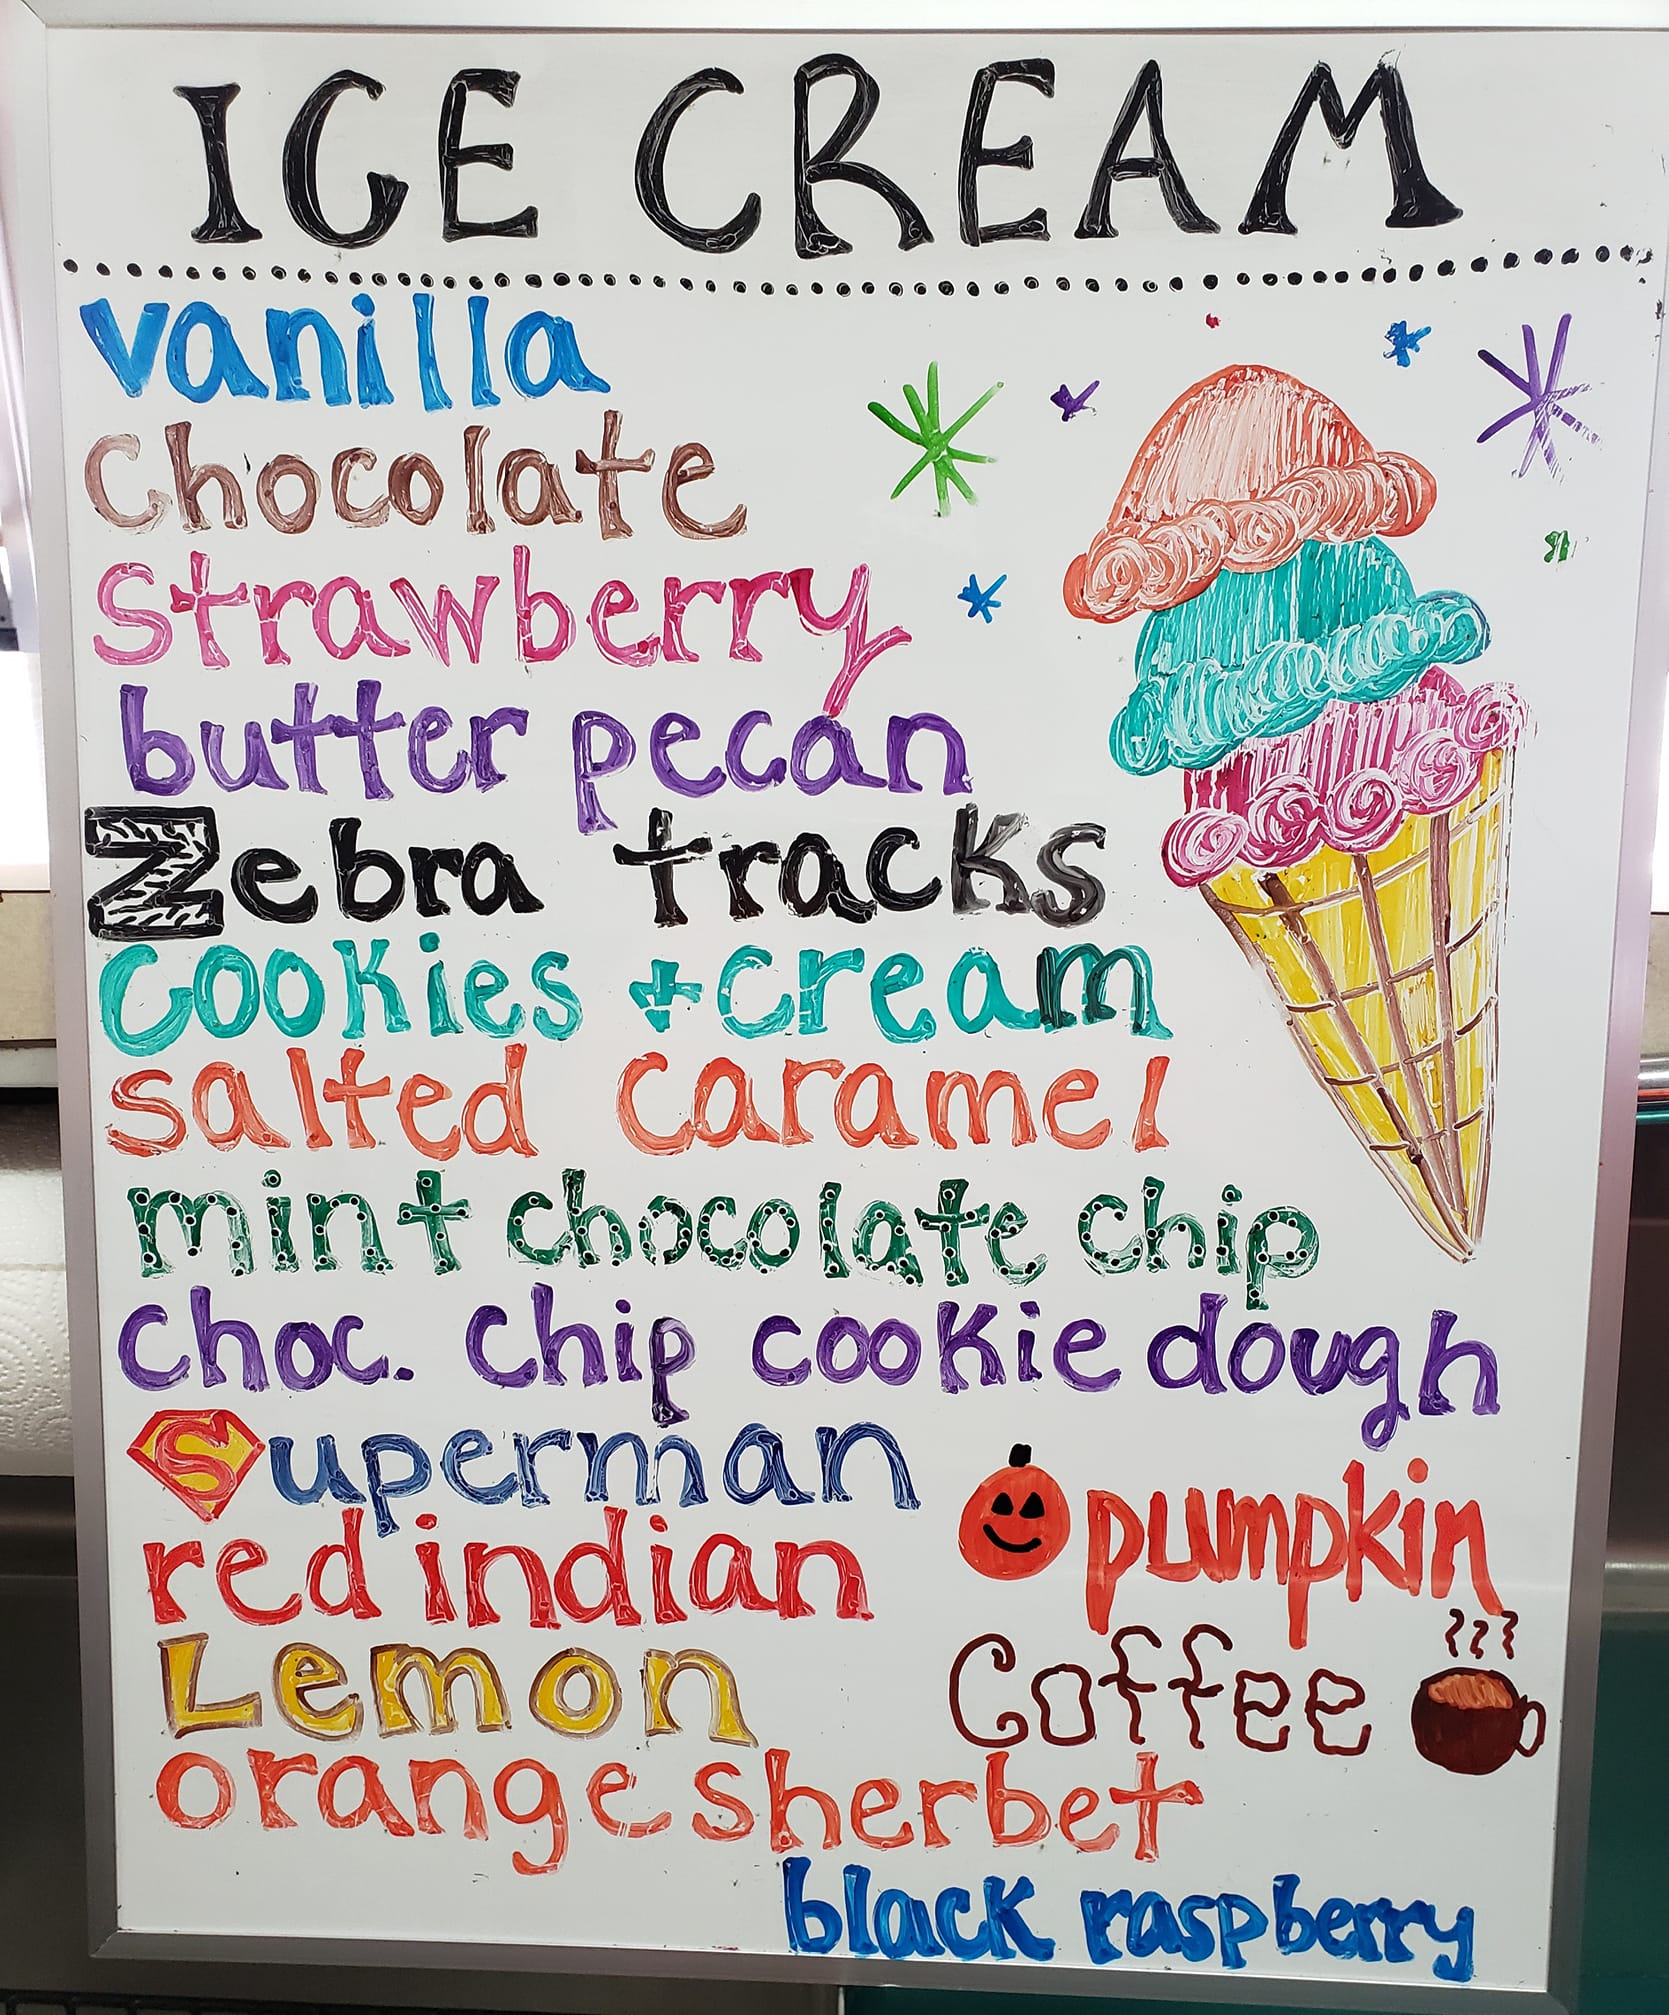 ICE CREAM
vanilla
Chocolate
Strawberry
butter pecan
Zebra tracks
Cookies + cream
salted caramel
mint chocolate chip
choc. chip cookie dough
Superman
pumpkin
red indian
Lemon
Coffee
orange sherbet
black raspberry